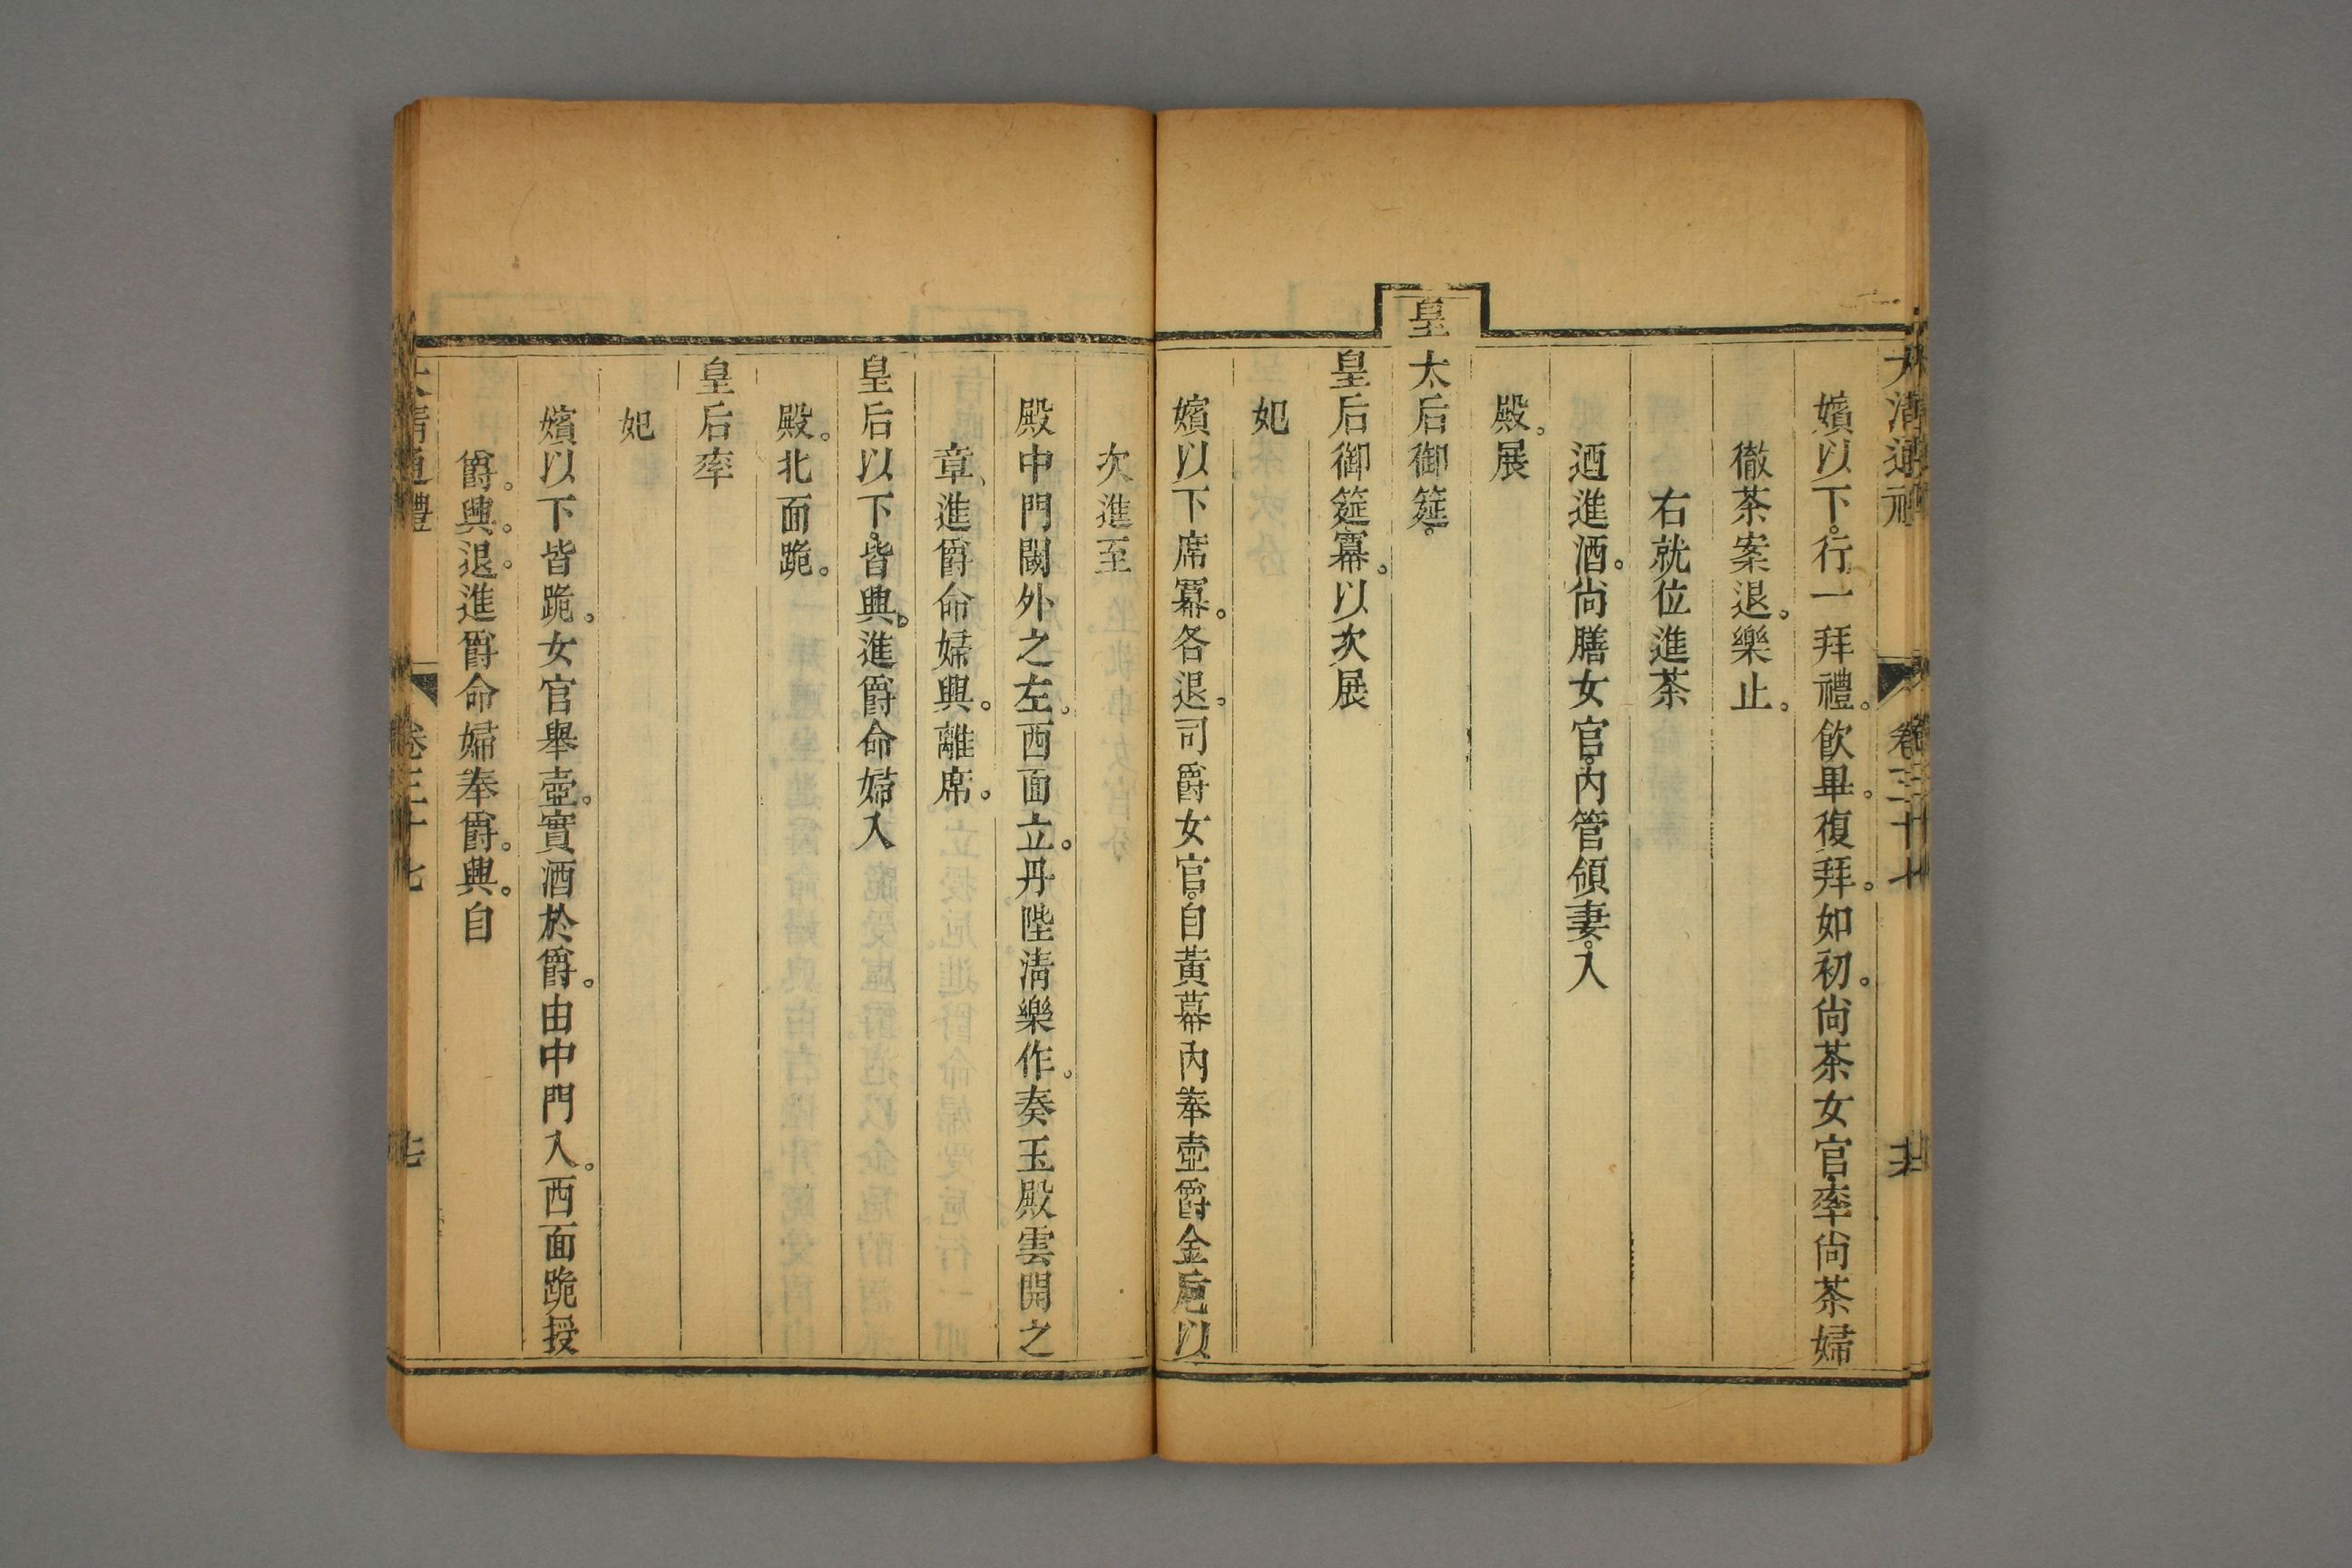 大清通禮 卷三十七
嬪以下。行一拜禮。飮畢。復拜。如初。尙茶女官。率尙茶婦
徹茶案退。樂止。
右就位進茶
酒進酒。尙膳女官。內管領妻。入
殿。展
皇太后御筵。
皇后御筵冪。以次展
妃
嬪以下席冪。各退。司爵女官。自黃幕內奉壺爵金卮以
次進至
殿中門閾外之左。西面立。丹陛淸樂作。奏玉殿雲開之
章、進爵命婦興。離席。
皇后以下。皆興。進爵命婦入
殿。北面跪。
皇后率
妃
嬪以下皆跪。女官舉壺。實酒於爵。由中門入。西面跪授
爵。興。退。進爵命婦奉爵。興。自
大清通禮 卷三十七